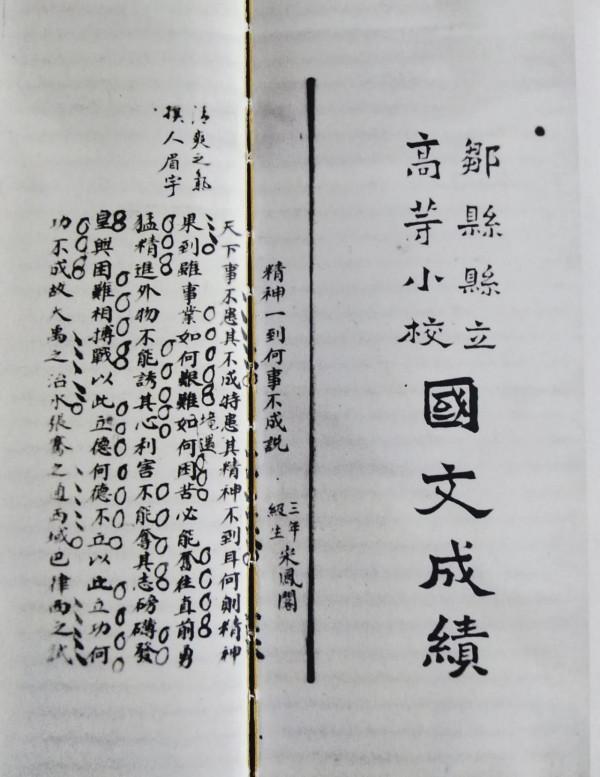 鄒縣縣立
高等小校
國文成績
精神一到何事不成説
三年
級生
宋鳳閣
天下事不患其不成特患其精神不到耳何則精神
果到雖事業如何艱難境遇如何困苦必能奮往直前勇
猛精進外物不能誘其心利害不能奪其志磅礴發
皇與困難相搏戰以此立德何德不立以此立功何
功不成故大禹之治水張騫之通西域巴律西之試
清爽之氣
撲人眉宇